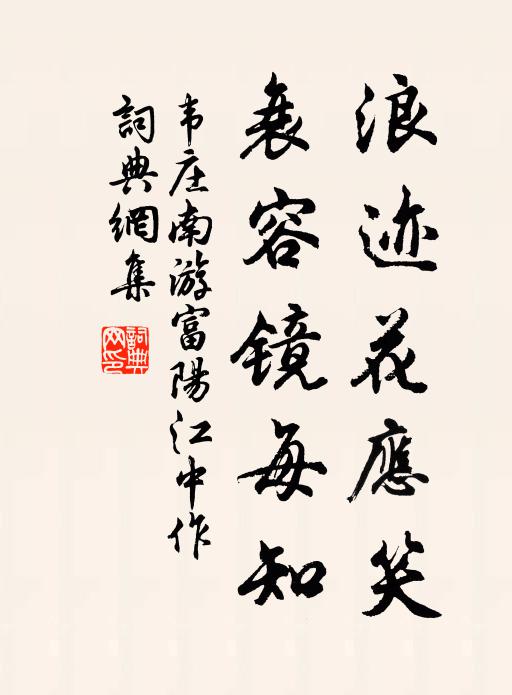 浪迹花應笑
衰容镜每知
韦庄南游富陽江中作
詞典網集
詞典网印